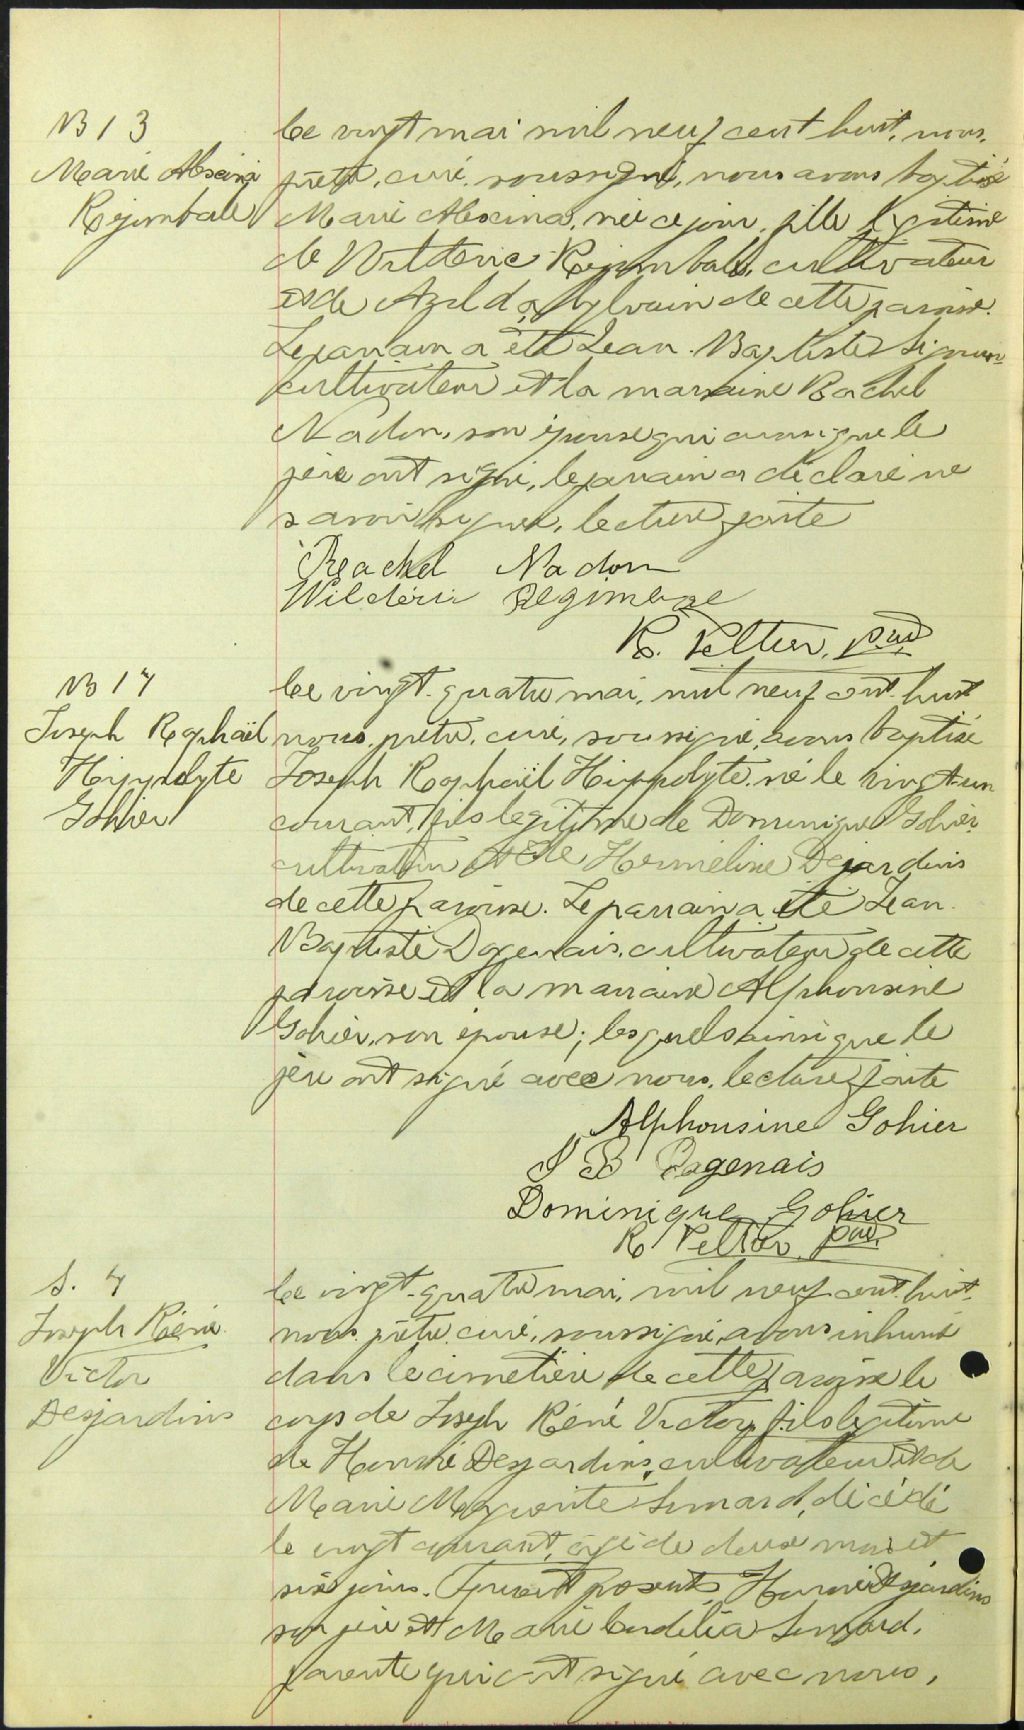 B 13
Marie Alexina
Régimbale
Le vingt mai mil neuf cent huit, nous,
prêtre, curé, soussigné, nous avons baptisé
Marie Alexina, née ce jour, fille légitime
de Wilderic Régimbale, cultivateur
et de Azilda Sylvain de cette paroisse.
Le parrain a été Jean-Baptiste
cultivateur et la marraine Rachel
Nadon, son épouse qui ainsi que le
père ont signé, le parrain a déclaré ne
savoir signer, lecture faite
Reachel Nadon
Wildéric
R. Peltier, ptre
B 14
Joseph Raphaël
Hippolyte
Gohier
Le vingt-quatre mai, mil neuf cent huit
nous, prêtre, curé, soussigné, avons baptisé
Joseph Raphaël Hippolyte, né le vingt-un
courant, fils légitime de Dominique Gohier
cultivateur et de Herméline Dejardins
de cette paroisse. Le parrain a été Jean
Baptiste Dagenais, cultivateur de cette
paroisse et la marraine Alphonsine
Gohier, son épouse; lesquels ainsi que le
père ont signé avec nous, lecture faite
Alphonsine Gohier
J B Dagenais
Dominique Gohier
R Peltier, ptre
S. 4
Joseph Réné
Victor
Desjardins
Le vingt-quatre mai, mil neuf cent huit,
nous, prêtre, curé, soussigné, avons inhumé
dans le cimetière de cette paroisse le
corps de Joseph Réné Victor, fils légitime
de Henri Desjardins, cultivateur et de
Marie Marguerite Simard, décédé
le vingt courant, âgé de deux mois et
six jours. Furent présents, Henri Desjardins
son père et Marie Cordélia Simard,
parente qui ont signé avec nous,